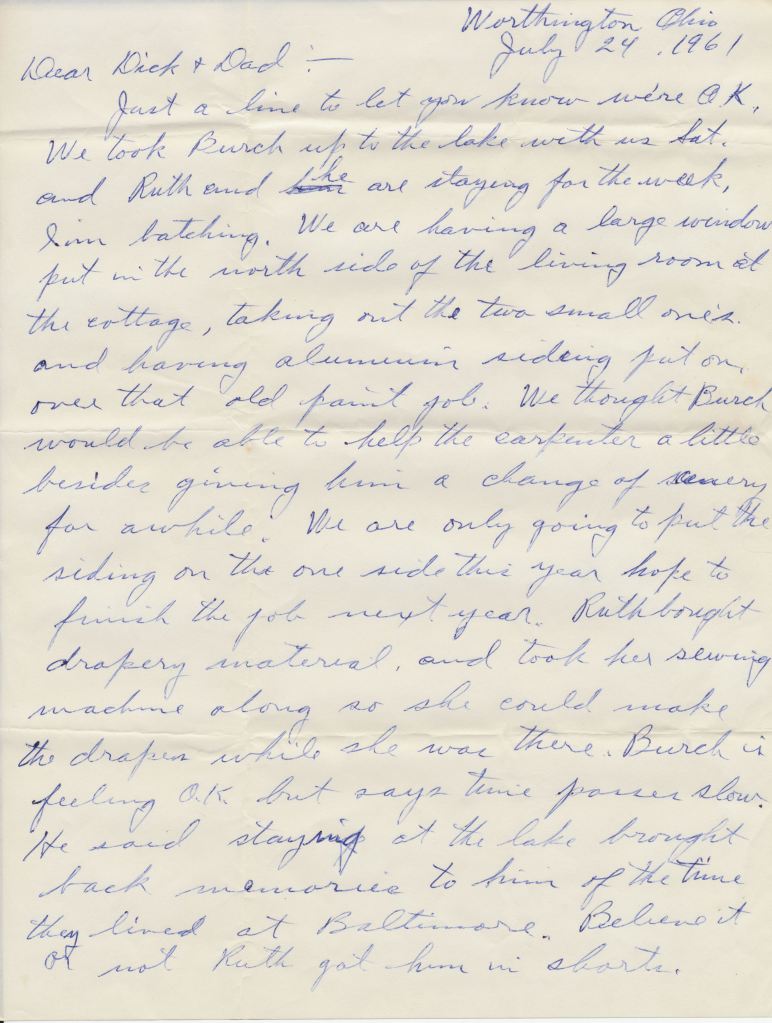 Worthington Ohio
July 24, 1961
Dear Dick + Dad :—
Just a line to let you know we're O.K.
We took Burch up to the lake with us Sat.
and Ruth and he are staying for the week,
I'm batching. We are having a large window
put in the north side of the living room at
the cottage, taking out the two small one's.
and having alumunim siding put on,
over that old paint job. We thought Burch
would be able to help the carpenter a little
besides giving him a change of scenery
for awhile. We are only going to put the
siding on the one side this year hope to
finish the job next year. Ruth bought
drapery material, and took her sewing
machine along so she could make
the drapes while she was there. Burch is
feeling O.K. but says time passes slow.
He said staying at the lake brought
back memories to him of the time
they lived at Baltimore. Believe it
or not Ruth got him in shorts.